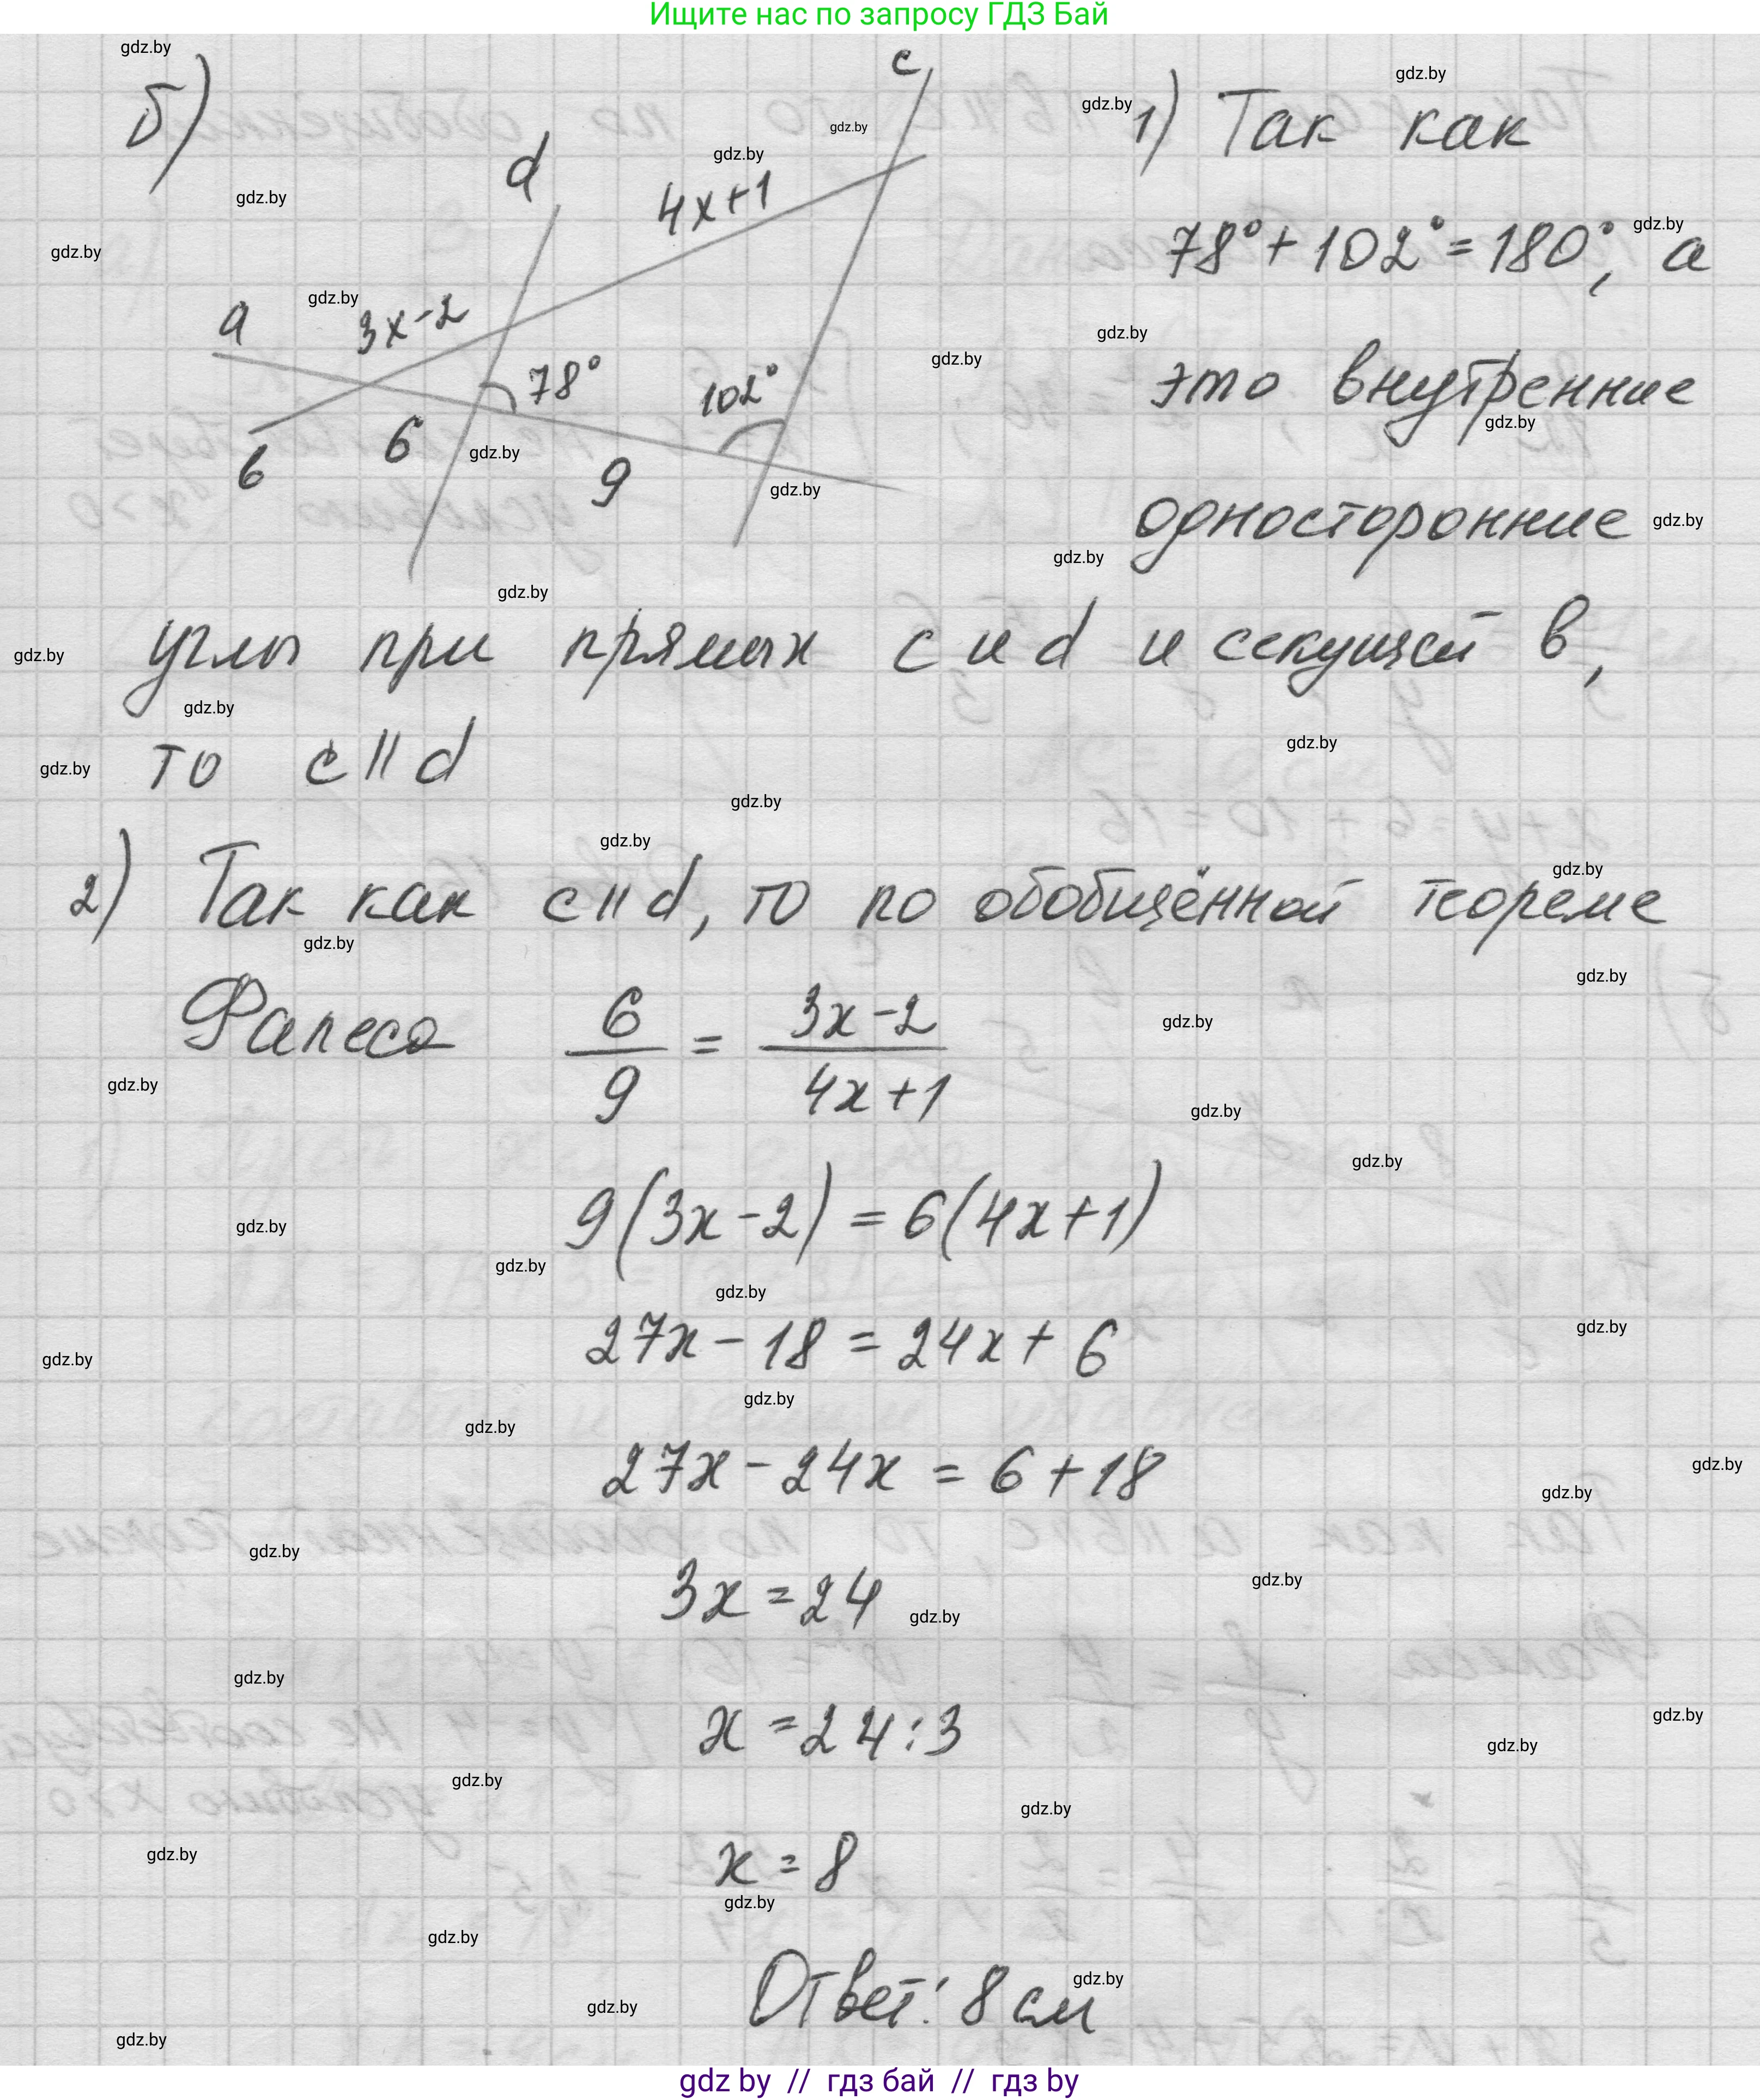 Ищите нас по запросу ГДЗ Бай
б)
c
d
4x+1
a
3x-2
78°
102°
6
в
9
1) Так как
78°+102°=180°, а
это внутренние
односторонние
углы при прямых c и d и секущей в,
то c || d
2) Так как c || d, то по обобщённой теореме
Фалеса 6/9 = 3x-2/4x+1
9(3x-2) = 6(4x+1)
27x - 18 = 24x + 6
27x - 24x = 6 + 18
3x = 24
x = 24:3
x = 8
Ответ: 8 см
gdz by // гдз бай // гдз by
gdz.by